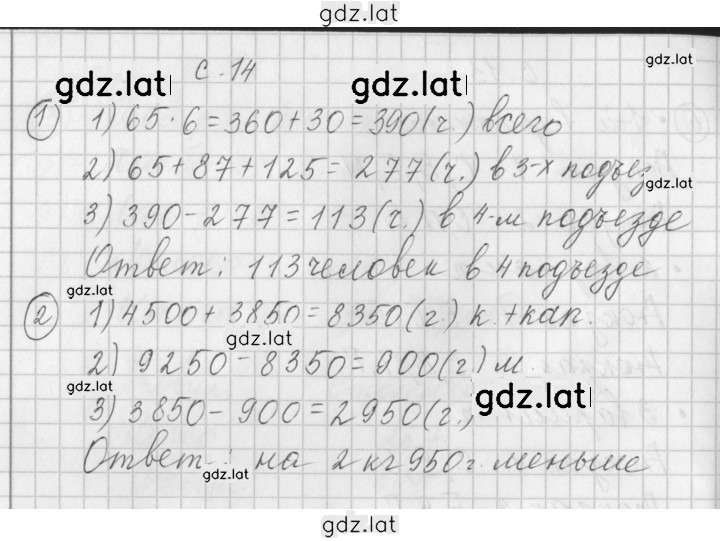 gdz.lat
с. 14
gdz.lat
gdz.lat
gdz.lat
1 1) 65·6=360+30=390(ч.) всего
2) 65+87+125= 277(ч.) в 3-х подъез
gdz.lat
3) 390-277=113(ч.) в 4-м подъезде
Ответ: 113 человек в 4 подъезде
gdz.lat
2 1) 4500+3850=8350(г.) к.+кап.
gdz.lat
2) 9250-8350=900(г.) м.
gdz.lat
gdz.lat
3) 3850-900=2950(г.)
Ответ: на 2 кг 950 г. меньше
gdz.lat
gdz.lat